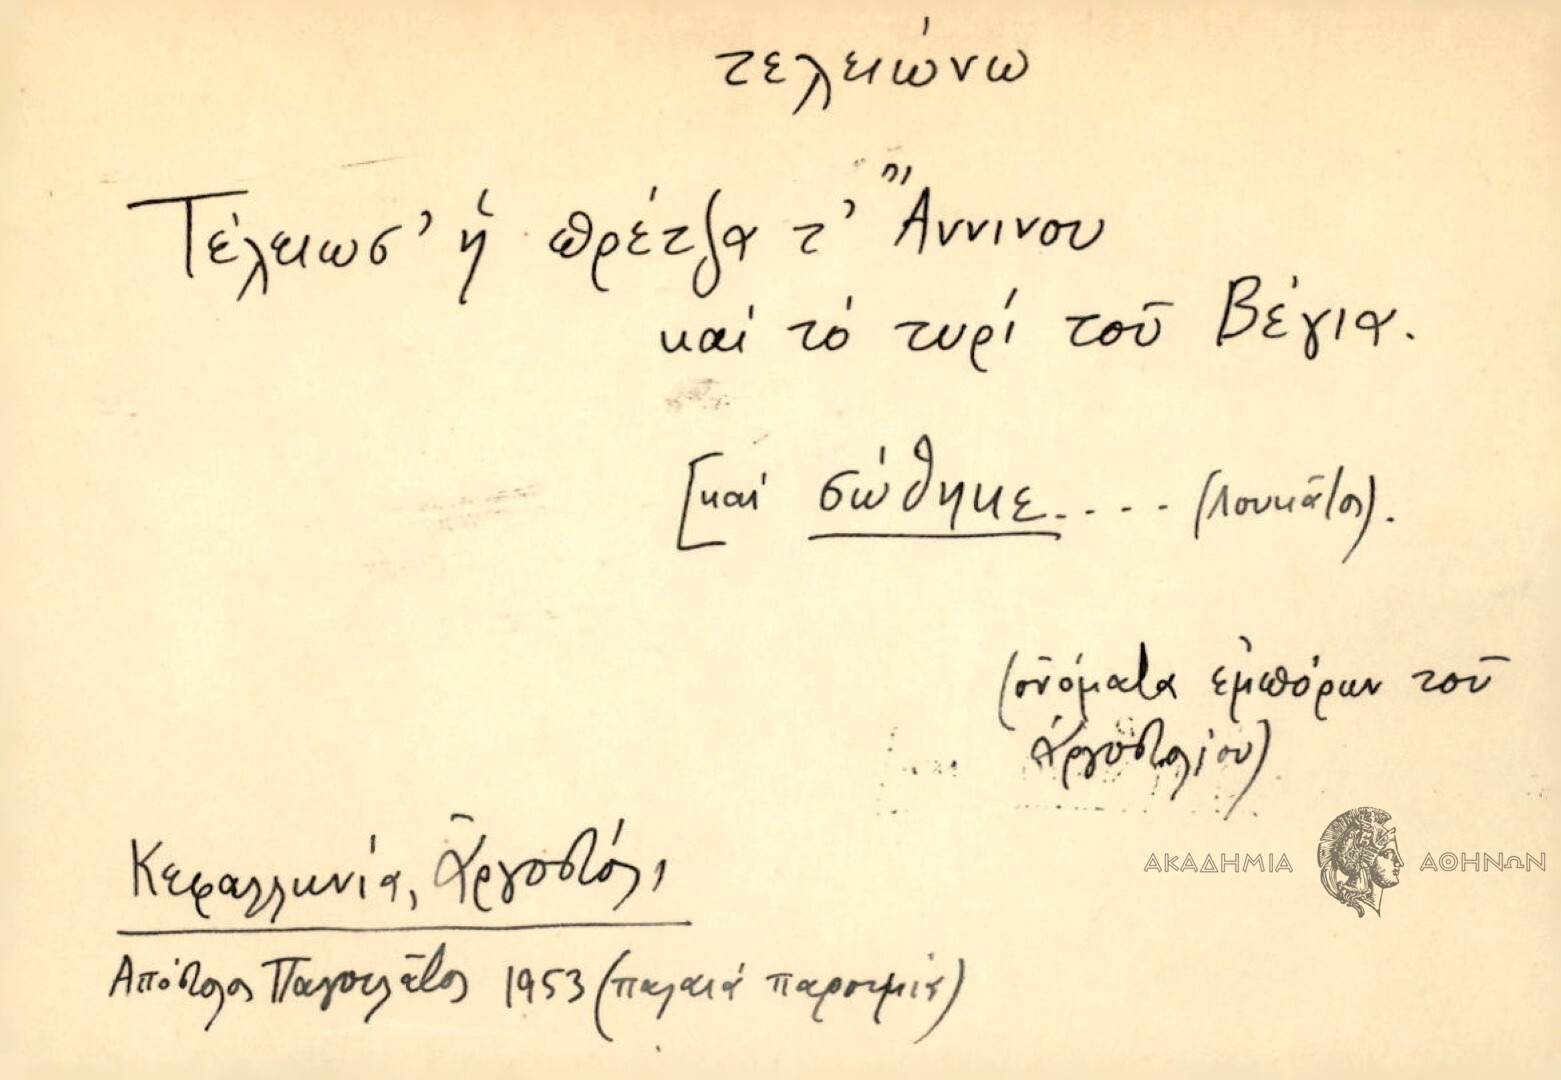 τελειώνω
Τέλειωσ' ἡ πρέτζα τ' Ἄννινου
καί τό τυρί τοῦ Βέγια.
[καί σώθηκε.... (Λουκᾶτος).
(ὀνόματα ἐμπόρων τοῦ
Ἀργοστολίου)
ΑΚΑΔΗΜΙΑ ΑΘΗΝΩΝ
Κεφαλληνία, Ἀργοστόλι
Απόστολος 1953 (παλαιά παροιμία)